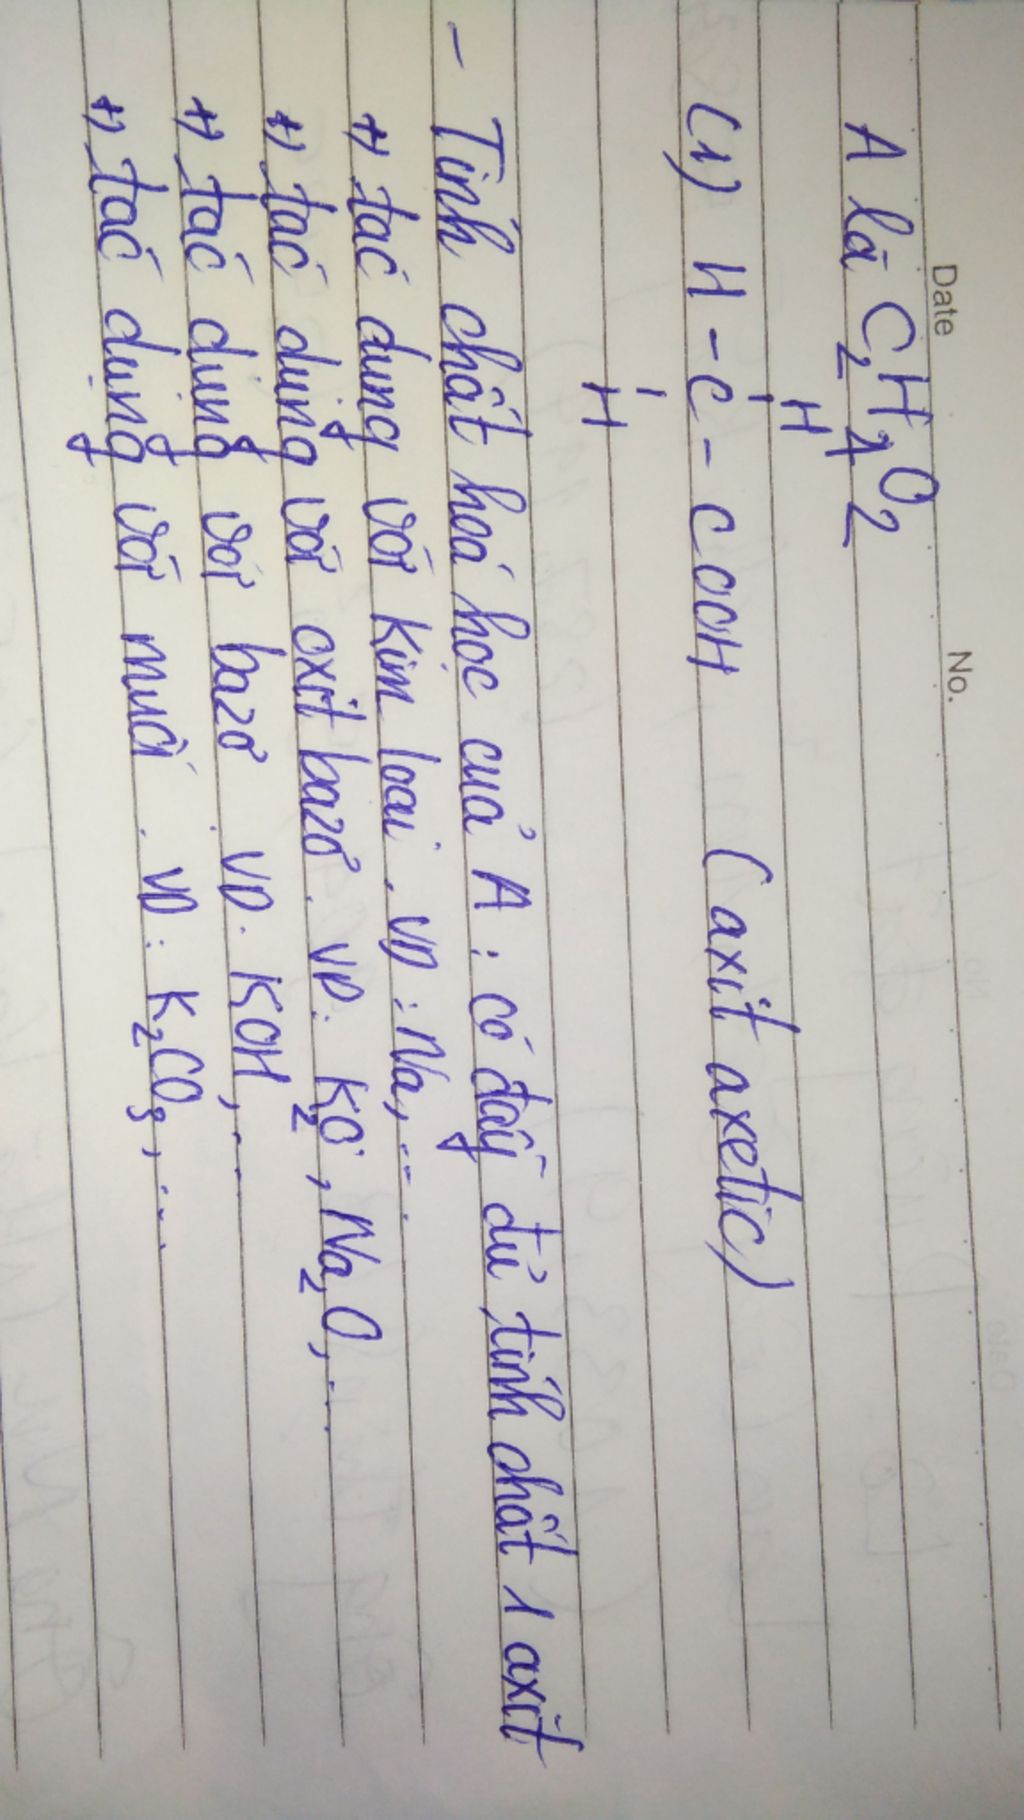 Date No.
A là C2H4O2
H
(1) H - C - COOH (axit axetic)
H
- Tính chất hoá học của A : có đầy đủ tính chất 1 axit
+) tác dụng với kim loại . VD : Na, ...
+) tác dụng với oxit bazơ . VD : K2O , Na2O , ...
+) tác dụng với bazơ . VD . KOH , ...
+) tác dụng với muối . VD : K2CO3 , ...